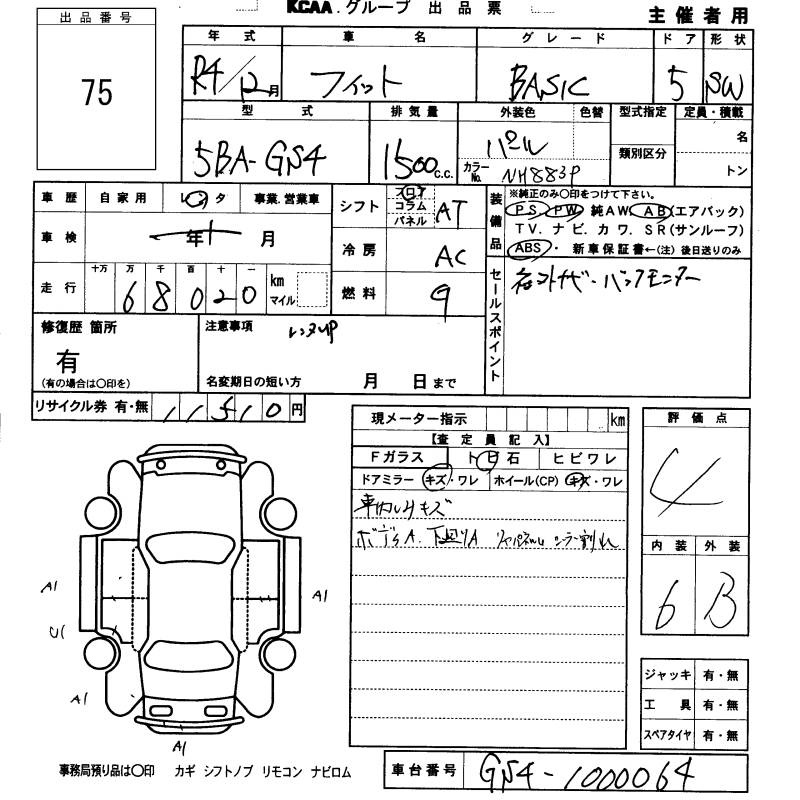 KCAA.グループ 出品票
主催者用
出品番号
75
年式 車名 グレード ドア 形状
R4/12月 フィット BASIC 5 SW
型式 排気量 外装色 色替 型式指定 定員・積載
5BA-GS4 1500c.c. パール カラーNo. NH883P 類別区分 名 トン
車歴 自家用 レンタ 事業.営業車 シフト フロア コラム パネル AT
装備品 ※純正のみ〇印をつけて下さい。
PS PW 純AW. AB(エアバック)
TV. ナビ. カワ. SR(サンルーフ)
ABS・新車保証書←(注)後日送りのみ
車検 年 月 冷房 AC
走行 十万 万 千 百 十 一 km マイル 燃料
68020
セールスポイント
修復歴 箇所 有
(有の場合は〇印を)
注意事項 レンタUP
名変期日の短い方 月 日まで
リサイクル券 有・無 11510円
現メーター指示 km
【査定員記入】
Fガラス ト 石 ヒビワレ
ドアミラー キズ・ワレ ホイール(CP) キズ・ワレ
車内シミキズ
ボディA.
評価点
4
内装 外装
6 B
A1
A1
A1
A1
ジャッキ 有・無
工具 有・無
スペアタイヤ 有・無
事務局預り品は〇印 カギ シフトノブ リモコン ナビロム
車台番号 GS4-1000064